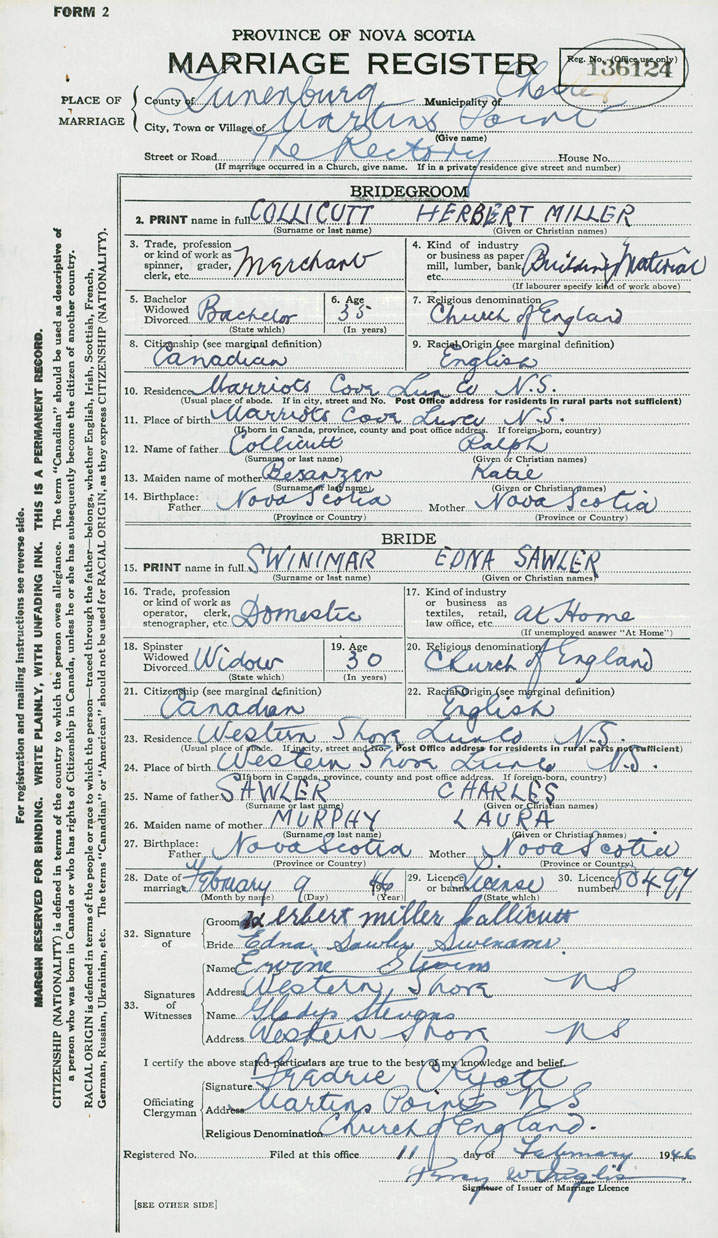 FORM 2
PROVINCE OF NOVA SCOTIA
MARRIAGE REGISTER
Reg. No. (Office use only)
136124
PLACE OF MARRIAGE
County of Lunenburg Municipality of Chester
City, Town or Village of Martins Point
(Give name)
Street or Road The Rectory House No.
(If marriage occurred in a Church, give name. If in a private residence give street and number)
BRIDEGROOM
2. PRINT name in full COLLICUTT HERBERT MILLER
(Surname or last name) (Given or Christian names)
3. Trade, profession or kind of work as spinner, grader, clerk, etc. Merchant
4. Kind of industry or business as paper mill, lumber, bank etc. Building Material
(If labourer specify kind of work above)
5. Bachelor Widowed Divorced Bachelor
(State which)
6. Age 35
(In years)
7. Religious denomination
Church of England
8. Citizenship (see marginal definition)
Canadian
9. Racial Origin (see marginal definition)
English
10. Residence Marriots Cove Lun Co N.S.
(Usual place of abode. If in city, street and No. Post Office address for residents in rural parts not sufficient)
11. Place of birth Marriots Cove Lun Co N.S.
(If born in Canada, province, county and post office address. If foreign-born, country)
12. Name of father Collicutt Ralph
(Surname or last name) (Given or Christian names)
13. Maiden name of mother Besanzen Katie
(Surname or last name) (Given or Christian names)
14. Birthplace: Father Nova Scotia Mother Nova Scotia
(Province or Country) (Province or Country)
BRIDE
15. PRINT name in full SWINIMAR EDNA SAWLER
(Surname or last name) (Given or Christian names)
16. Trade, profession or kind of work as operator, clerk, stenographer, etc. Domestic
17. Kind of industry or business as textiles, retail, law office, etc. at Home
(If unemployed answer "At Home")
18. Spinster Widowed Divorced Widow
(State which)
19. Age 30
(In years)
20. Religious denomination
Church of England
21. Citizenship (see marginal definition)
Canadian
22. Racial Origin (see marginal definition)
English
23. Residence Western Shore Lun Co N.S.
(Usual place of abode. If in city, street and No. Post Office address for residents in rural parts not sufficient)
24. Place of birth Western Shore Lun Co N.S.
(If born in Canada, province, county and post office address. If foreign-born, country)
25. Name of father SAWLER CHARLES
(Surname or last name) (Given or Christian names)
26. Maiden name of mother MURPHY LAURA
(Surname or last name) (Given or Christian names)
27. Birthplace: Father Nova Scotia Mother Nova Scotia
(Province or Country) (Province or Country)
28. Date of marriage February 9 46
(Month by name) (Day) (Year)
29. Licence or banns License
(State which)
30. Licence number 80497
32. Signature of
Groom Herbert Miller Collicutt
Bride Edna Sawler
33. Signatures of Witnesses
Name Ervine Stevens
Address Western Shore NS
Name Gladys Stevens
Address Western Shore NS
I certify the above stated particulars are true to the best of my knowledge and belief.
Officiating Clergyman
Signature Fredric Ryott
Address Martins Point NS
Religious Denomination Church of England.
Registered No. Filed at this office 11 day of February 1946
Percy
Signature of Issuer of Marriage Licence
[SEE OTHER SIDE]
For registration and mailing instructions see reverse side.
MARGIN RESERVED FOR BINDING. WRITE PLAINLY, WITH UNFADING INK. THIS IS A PERMANENT RECORD.
CITIZENSHIP (NATIONALITY) is defined in terms of the country to which the person owes allegiance. The term "Canadian" should be used as descriptive of
a person who was born in Canada or who has rights of Citizenship in Canada, unless he or she has subsequently become the citizen of another country.
RACIAL ORIGIN is defined in terms of the people or race to which the person—traced through the father—belongs, whether English, Irish, Scottish, French,
German, Russian, Ukrainian, etc. The terms "Canadian" or "American" should not be used for RACIAL ORIGIN, as they express CITIZENSHIP (NATIONALITY).